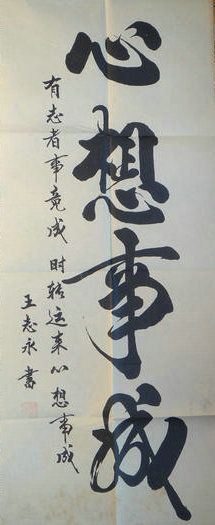 心想事成
有志者事竟成 时转运来心想事成
王志永書